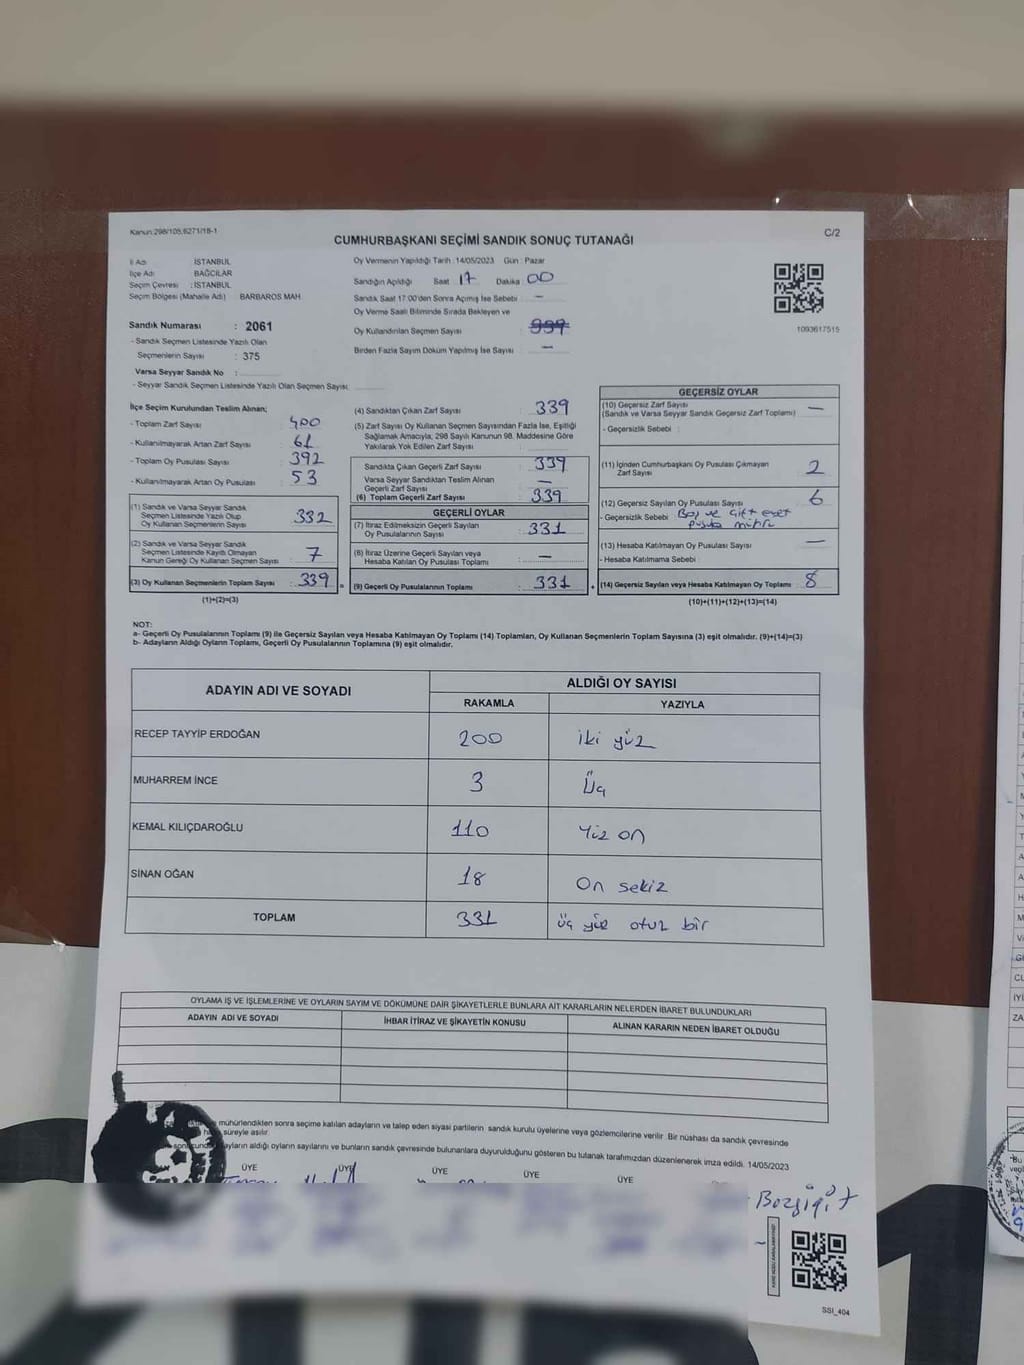 Kanun:298/105;6271/18-1
C/2
CUMHURBAŞKANI SEÇİMİ SANDIK SONUÇ TUTANAĞI
İl Adı : İSTANBUL
İlçe Adı : BAĞCILAR
Seçim Çevresi : İSTANBUL
Seçim Bölgesi (Mahalle Adı) BARBAROS MAH
Sandık Numarası : 2061
- Sandık Seçmen Listesinde Yazılı Olan
Seçmenlerin Sayısı : 375
Varsa Seyyar Sandık No :
- Seyyar Sandık Seçmen Listesinde Yazılı Olan Seçmen Sayısı:
Oy Vermenin Yapıldığı Tarih : 14/05/2023 Gün : Pazar
Sandığın Açıldığı Saat 17 Dakika 00
Sandık Saat 17:00'den Sonra Açılmış İse Sebebi : —
Oy Verme Saati Bitiminde Sırada Bekleyen ve
Oy Kullandırılan Seçmen Sayısı : 339
Birden Fazla Sayım Döküm Yapılmış İse Sayısı : —
1093617515
İlçe Seçim Kurulundan Teslim Alınan;
- Toplam Zarf Sayısı : 400
- Kullanılmayarak Artan Zarf Sayısı : 61
- Toplam Oy Pusulası Sayısı : 392
- Kullanılmayarak Artan Oy Pusulası : 53
(1) Sandık ve Varsa Seyyar Sandık
Seçmen Listesinde Yazılı Olup
Oy Kullanan Seçmenlerin Sayısı : 332
(2) Sandık ve Varsa Seyyar Sandık
Seçmen Listesinde Kayıtlı Olmayan
Kanun Gereği Oy Kullanan Seçmen Sayısı : 7
(3) Oy Kullanan Seçmenlerin Toplam Sayısı : 339 =
(1)+(2)=(3)
(4) Sandıktan Çıkan Zarf Sayısı : 339
(5) Zarf Sayısı Oy Kullanan Seçmen Sayısından Fazla İse, Eşitliği
Sağlamak Amacıyla; 298 Sayılı Kanunun 98. Maddesine Göre
Yakılarak Yok Edilen Zarf Sayısı :
Sandıkta Çıkan Geçerli Zarf Sayısı : 339
Varsa Seyyar Sandıktan Teslim Alınan
Geçerli Zarf Sayısı : —
(6) Toplam Geçerli Zarf Sayısı : 339
GEÇERLİ OYLAR
(7) İtiraz Edilmeksizin Geçerli Sayılan
Oy Pusulası Sayısı : 331
(8) İtiraz Üzerine Geçerli Sayılan veya
Hesaba Katılan Oy Pusulası Toplamı : —
(9) Geçerli Oy Pusulalarının Toplamı : 331 +
GEÇERSİZ OYLAR
(10) Geçersiz Zarf Sayısı
(Sandık ve Varsa Seyyar Sandık Geçersiz Zarf Toplamı) : —
- Geçersizlik Sebebi :
(11) İçinden Cumhurbaşkanı Oy Pusulası Çıkmayan
Zarf Sayısı : 2
(12) Geçersiz Sayılan Oy Pusulası Sayısı : 6
- Geçersizlik Sebebi Boş ve çift evet
pusula
(13) Hesaba Katılmayan Oy Pusulası Sayısı : —
- Hesaba Katılmama Sebebi
(14) Geçersiz Sayılan veya Hesaba Katılmayan Oy Toplamı : 8
(10)+(11)+(12)+(13)=(14)
NOT:
a- Geçerli Oy Pusulalarının Toplamı (9) ile Geçersiz Sayılan veya Hesaba Katılmayan Oy Toplamı (14) Toplamları, Oy Kullanan Seçmenlerin Toplam Sayısına (3) eşit olmalıdır. (9)+(14)=(3)
b- Adayların Aldığı Oyların Toplamı, Geçerli Oy Pusulalarının Toplamına (9) eşit olmalıdır.
ADAYIN ADI VE SOYADI
ALDIĞI OY SAYISI
RAKAMLA YAZIYLA
RECEP TAYYİP ERDOĞAN 200 iki yüz
MUHARREM İNCE 3 Üç
KEMAL KILIÇDAROĞLU 110 Yüz on
SİNAN OĞAN 18 On sekiz
TOPLAM 331 üç yüz otuz bir
OYLAMA İŞ VE İŞLEMLERİNE VE OYLARIN SAYIM VE DÖKÜMÜNE DAİR ŞİKAYETLERLE BUNLARA AİT KARARLARIN NELERDEN İBARET BULUNDUKLARI
ADAYIN ADI VE SOYADI İHBAR İTİRAZ VE ŞİKAYETİN KONUSU ALINAN KARARIN NEDEN İBARET OLDUĞU
mühürlendikten sonra seçime katılan adayların ve talep eden siyasi partilerin sandık kurulu üyelerine veya gözlemcilerine verilir. Bir nüshası da sandık çevresinde
süreyle asılır.
ayların aldığı oyların sayılarını ve bunların sandık çevresinde bulunanlara duyurulduğunu gösteren bu tutanak tarafımızdan düzenlenerek imza edildi. 14/05/2023
ÜYE ÜYE ÜYE ÜYE ÜYE
Bozyiğit
SSI_404